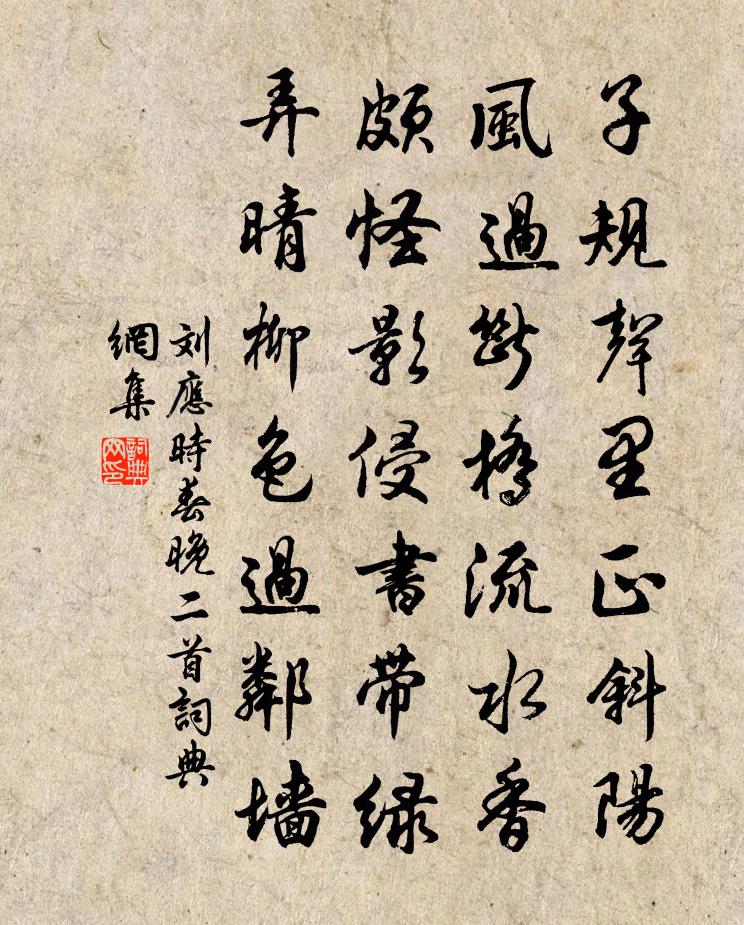 子規聲里正斜陽
風過斷橋流水香
頗怪影侵書帶緑
弄晴柳色過鄰墻
刘應時春晚二首詞典
網集
詞典
网印